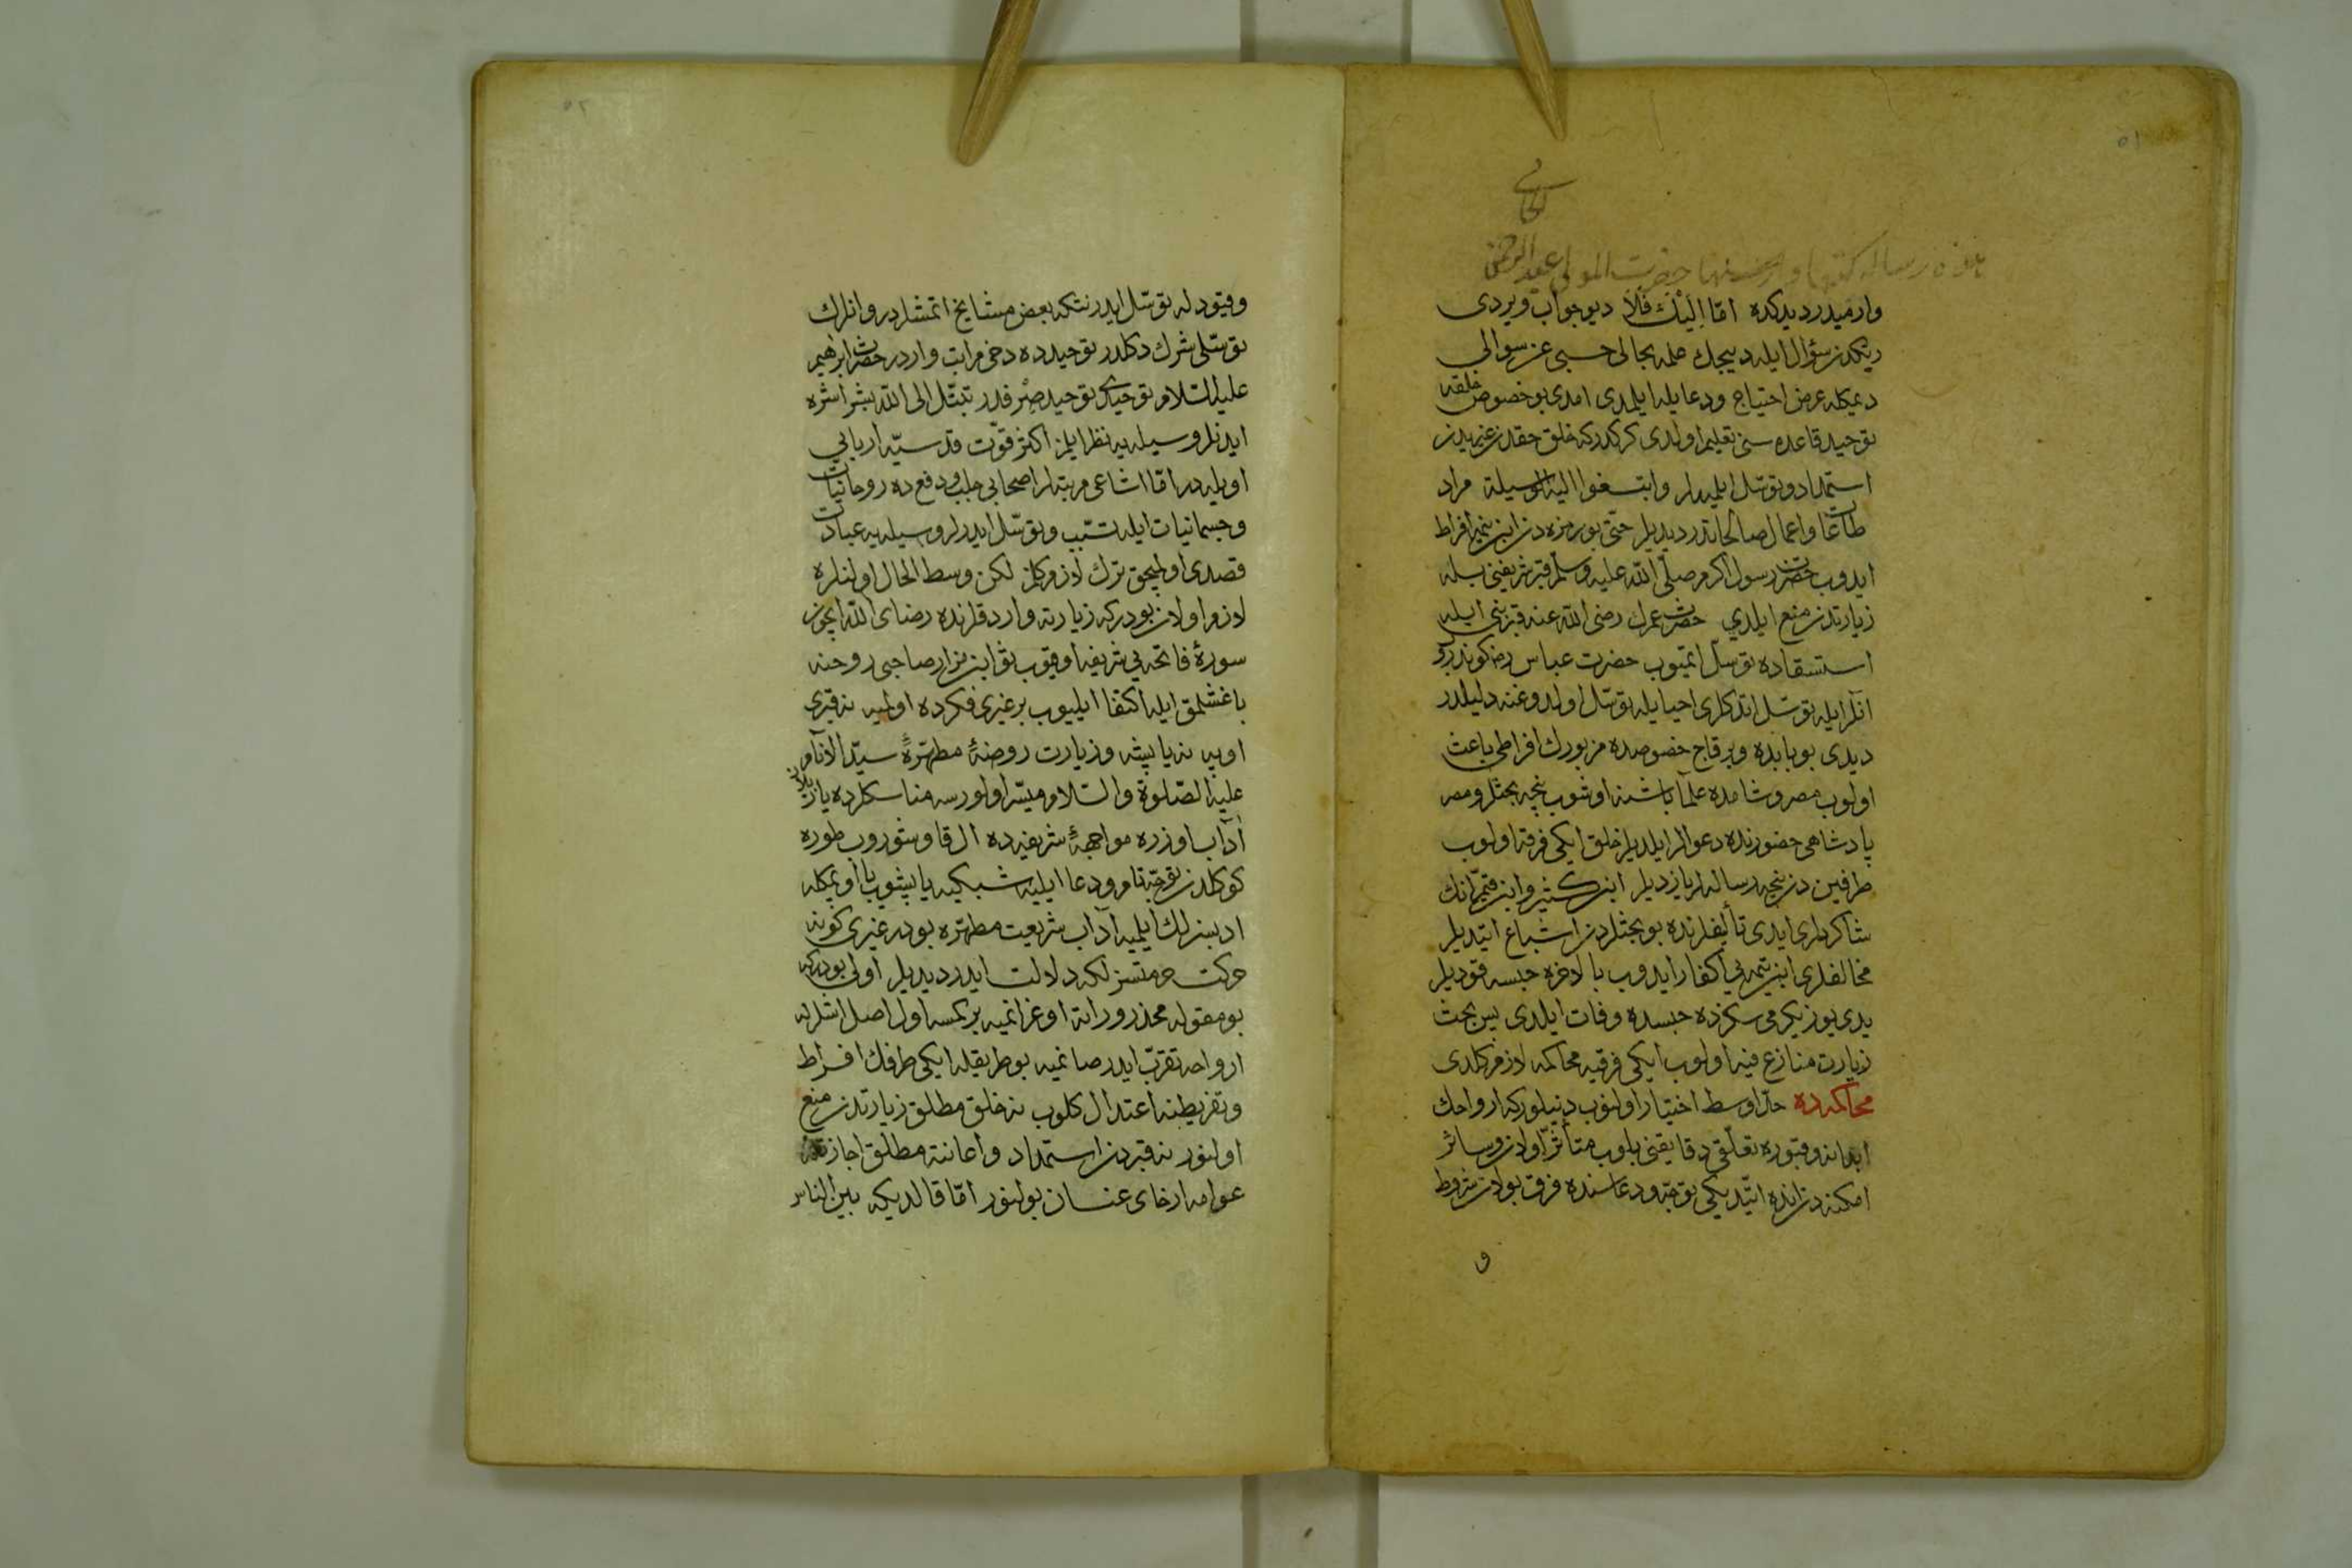 ٥١
هذه رسالة كتبها و حضرت المولى عبد الرحمن
وارميدر ديدكده امّا اِلَيْكَ فَلَا ديو جواب ويردى
ربّكدن سؤال ايله دييجك علمه بحالى حسبى عن سوالى
ديمكله عرض احتياج ودعا يله ايلمدى امدى بو خصوص خلقه
توحيد قاعده سنى تعليم اولدى كركدركه خلق حقدن غيريدن
استمداد وتوسّل ايليه لر وابتغوا اليه الوسيلة مراد
طاعات واعمال صالحاتدر ديديلر حتّى بو زمره دن ابن تيميه افراط
ايدوب حضرت رسول اكرم صلّى الله عليه وسلّم قبر شريفنى بيله
زيارتدن منع ايلدي حضرت عمرك رضى الله عنه قبر نبى ايله
استسقاده توسّل ايتميوب حضرت عباس رضه كوندروب
انلر ايله توسّل اتدكلرى احيا يله توسّل اولدوغنه دليلدر
ديدى بو بابده وبر قاچ خصوصده مزبورك افراطى باعث
اولوب مصر وشامده علما باشنه اوشوب نيچه بحثلر ومصر
پادشاهى حضورنده دعوالر ايلديلر خلق ايكى فرقه اولوب
طرفين دن نيچه رساله لر يازديلر ابن كثير وابن قيّم انك
شاكردلرى ايدى تأليفلرنده بو بحثلردن اشباع ايتديلر
مخالفلرى ابن تيميه يي اكفار ايدوب بالاخره حبسه قوديلر
يدى يوز يكرمى سكزده حبسده وفات ايلدى پس بحث
زيارت منازع فيه اولوب ايكى فرقيه محاكمه لازم كلدى
محاكمه ده حدّ اوسط اختيار اولنوب دنيلوركه ارواحك
ابدانه وقبوره تعلّقى دقايقنى بلوب متأثر اولان وسائر
امكنه دن انده ايتديكى توجّه ودعاسنده فرق بولان شروط
و
٥٢
وقيود له توسّل ايدر نتكه بعض مشايخ اتمشلردر وانلرك
توسّلى شرك دكلدر توحيدده دخى مراتب واردر حضرت ابرهيم
عليه السّلام توحيدى توحيد صِرفدر تبتّل الى الله بشر اشره
ايدنلر وسيله يه نظر ايلمز اكثر قوّت قدسيّه اربابي
اويله در امّا اشاغى مرتبه لر اصحابى جلب ودفع ده روحانيات
وجسمانيات ايله تسبّب وتوسّل ايدرلر وسيله يه عبادت
قصدى اولميجق ترك لازم كلمز لكن وسط الحال اولنلره
لازم اولان بودركه زيارته وارد قلرنده رضاى الله ايچون
سورهٔ فاتحه يي شريفه اوقيوب ثوابن مزار صاحبى روحنه
باغشلمق ايله اكتفا ايليوب بر غيرى فكرده اولميه نه قبرى
اوپه نه ياپيشه وزيارت روضهٔ مطهّرهٔ سيّد الانام
عليه الصّلوة والسّلام ميسّر اولورسه مناسكلرده يازيلان
آداب اوزره مواجههٔ شريفه ده ال قاوشدوروب طوره
كوكلدن توجّه تام ودعا ايليه شبكيه ياپيشوب يا اوپمكله
ادبسزلك ايلميه آداب شريعت مطهّره بودر غيرى كونه
حركت حرمتسزلكه دلالت ايدر ديديلر اولى بودركه
بو مقوله محذوراته اوغراتميه بر كمسه اول اصل اشلرله
ارواحه تقرّب ايدر صانميه بو طريقله ايكى طرفك افراط
وتفريطنه اعتدال كلوب نه خلق مطلق زيارتدن منع
اولنور نه قبردن استمداد واعانته مطلق اجازتله
عوامه ارخاى عنان بولنور امّا قالديكه بين الناس